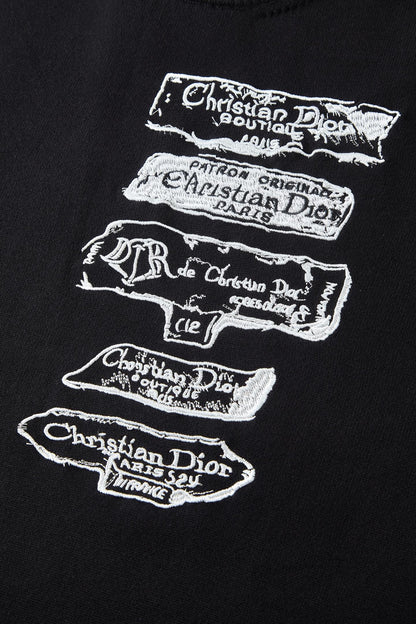 Christian Dior
BOUTIQUE
PARIS
PATRON ORIGINAL
Christian Dior
PARIS
de Christian Dior
Christian Dior
BOUTIQUE
PARIS
Christian Dior
PARIS